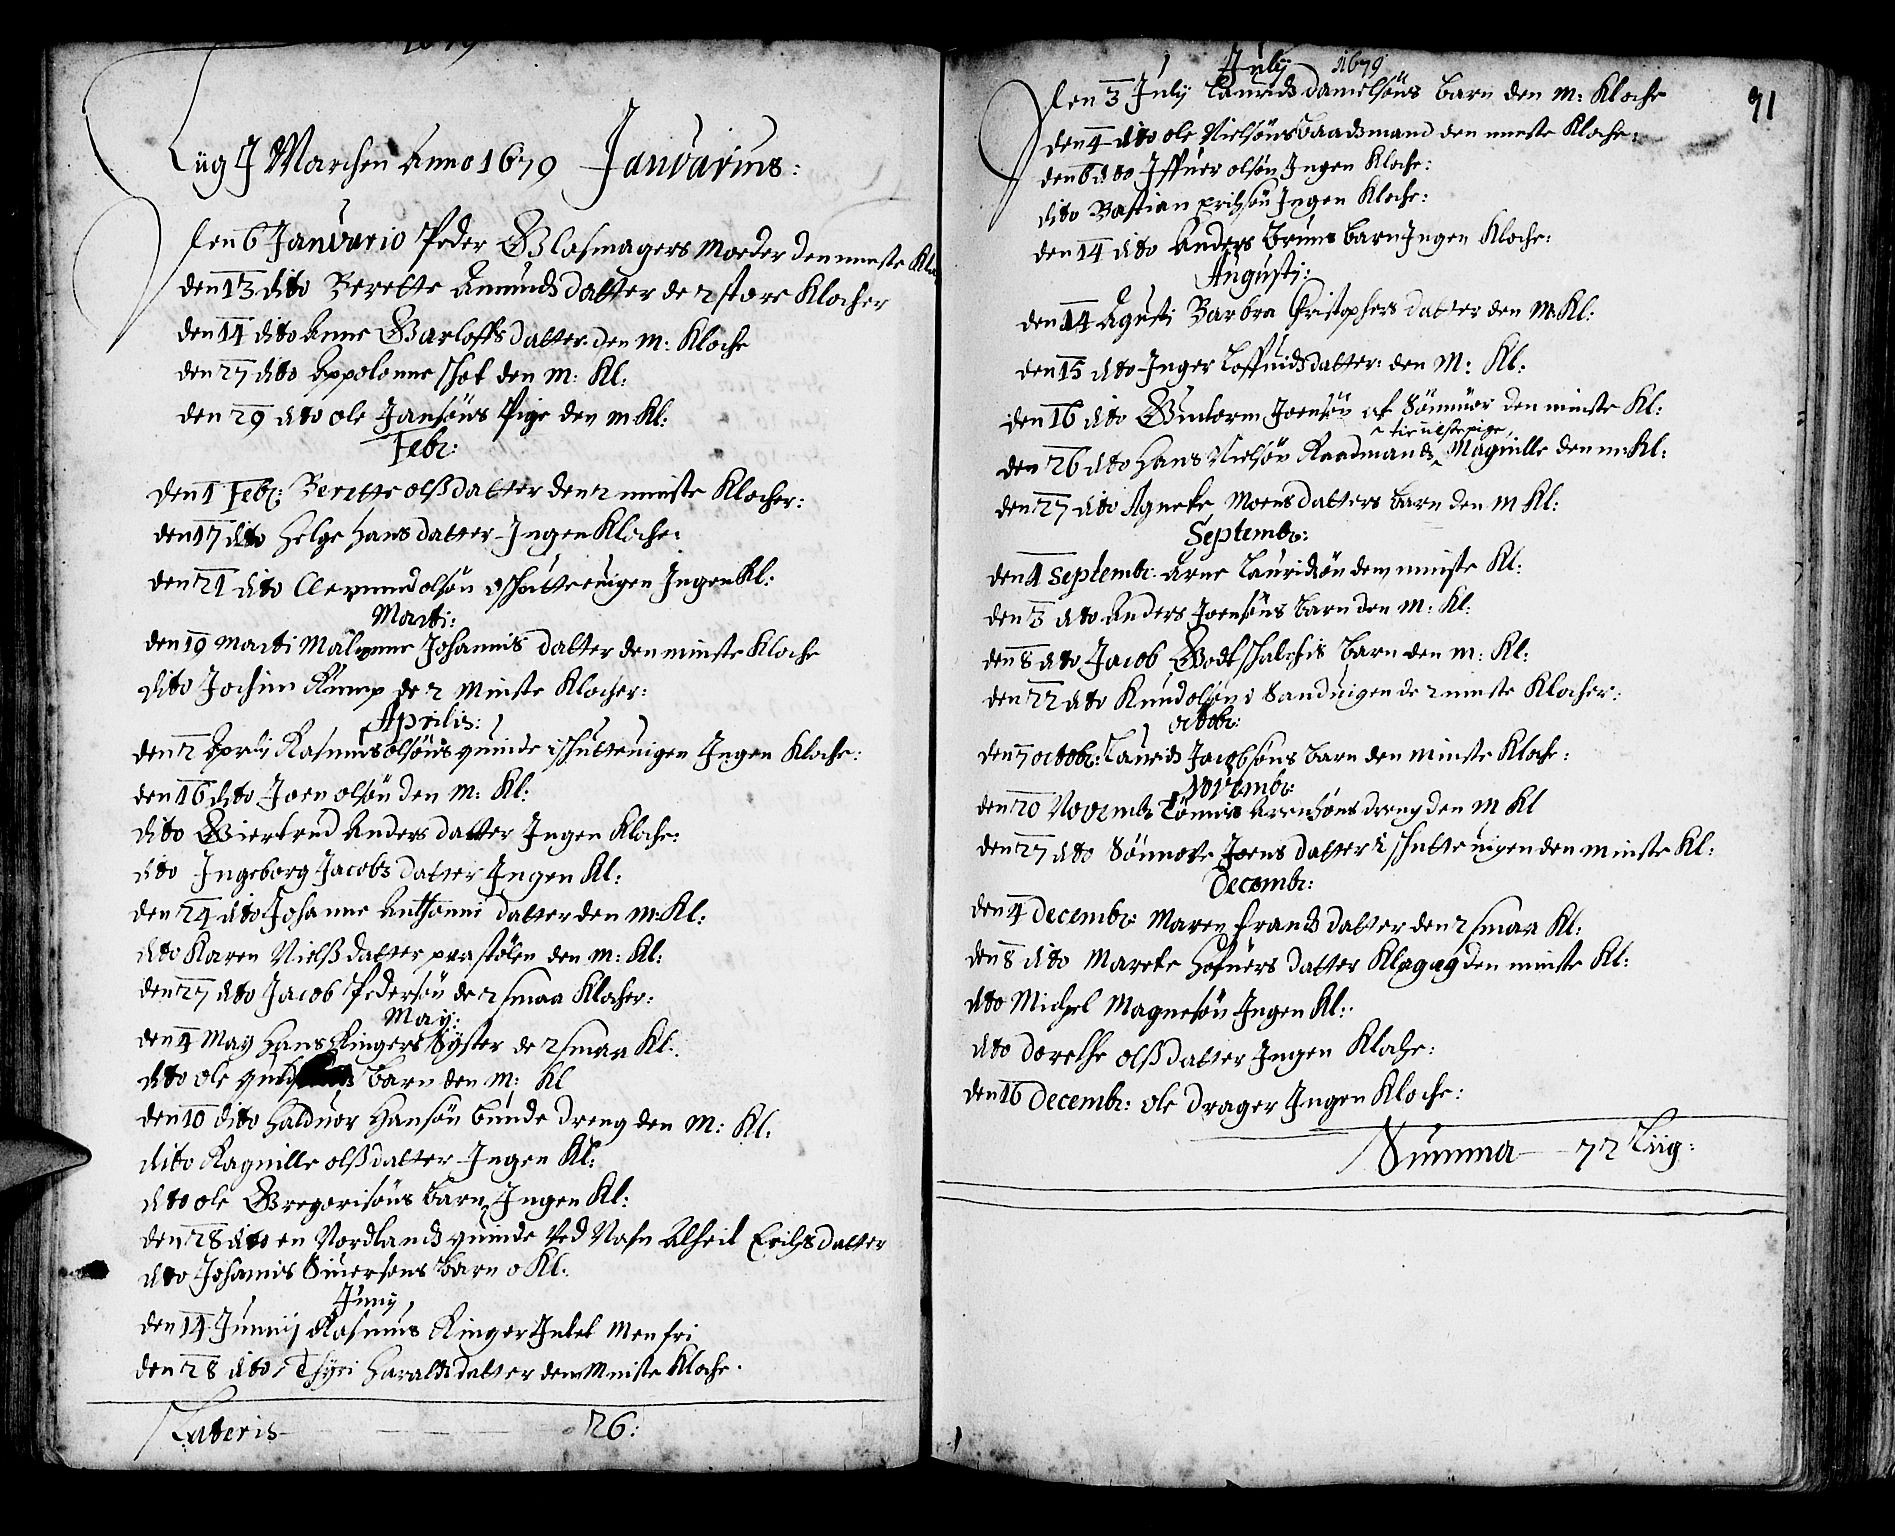 1679
Liig J Marchen Anno 1679 Januarius:
den 6 Januario Peder Glasmagers Moeder den minste Klo
den 13 dito Berette Amunds datter de 2 store Klocher
den 14 dito Anne Garloffs datter den M: Kloche
den 27 dito Appolonne schot den M: Kl:
den 29 dito ole Jansöns Pige den M Kl:
Febr:
den 1 Febr: Berette olsdatter den 2 minste Klocher:
den 17 dito Helge Hans datter Jngen Kloche:
den 21 dito olsön schutteuigen Jngen Kl:
Marti:
den 19 Marti Malenne Johannis datter den minste Kloche
dito Jochim Rump de 2 Minste Klocher:
Aprilis:
den 2 Aprilij Rasmus olsöns quinde i schutteuigen Jngen Kloche:
den 16 dito Joen olsön den M: Kl:
dito Giertrud Anders datter Jngen Kloche:
dito Jngeborg Jacobs datter Jngen Kl:
den 24 dito Johanne Anthonni datter den M: Kl:
dito Karen Niels datter paa stölen den M: Kl:
den 27 dito Jacob Pedersön de 2 smaa Klocher:
May:
den 4 May Hans Ringers Syster de 2 smaa Kl:
dito ole barn den M: Kl
den 10 dito Halduor Hansön bunde dreng den M: Kl:
dito Ragnille olsdatter Jngen Kl:
dito ole Gregorisöns barn Jngen Kl:
den 28 dito en Nordlands quinde ved Nafn Alheil Erichs datter
dito Johannis Siuersöns barn o Kl:
Junij
den 14 Junnij Rasmus Ringer Jntet Men fri
den 28 dito Thyri Haralds datter den Minste Kloche.
Lateris 26:
July 1679
91
den 3 July Laurids danielsöns barn den M: Kloche
den 4 dito ole Nielsöns baadsmand den minste Kloche:
den 6 dito Jffuer olsön Jngen Kloche:
dito Bastian Jngen Kloche:
den 14 dito Anders bruns barn Jngen Kloche:
Augusti:
den 14 Agusti Barbra Christophers datter den M Kl:
den 15 dito Jnger Loffuids datter: den M: Kl:
den 16 dito Guttorm Joensön af Sönmör den minste Kl:
^ tieniste pige
den 26 dito Hans Nielsön Raadmands ^ Magnille den m Kl:
den 27 dito Agnete Moens datters barn den M Kl:
Septembr:
den 4 Septembr. Arne Lauridsön den minste Kl:
den 5 dito Anders Joensöns barn den M: Kl:
den 8 dito Jacob Godtschalchis barn den M: Kl:
den 22 dito Knud olsön i Sanduigen de 2 minste Klocher:
octobr:
den 7 octobr: Laurids Jacobsöns barn den minste Kloche:
Novembr:
den 20 Novembr Tönnis Arensöns dreng den M Kl
den 27 dito Sönnove Joens datter i schutteuigen den minste Kl:
Decembr:
den 4 Decembr: Maren frands datter den 2 smaa Kl:
den 8 dito Marete Hofuers datter Klagag den minste Kl:
dito Michel Magnesön Jngen Kl:
dito dorethe olsdatter Jngen Kloche:
den 16 Decembr: ole Drager Jngen Kloche:
Summa 72 Liig: